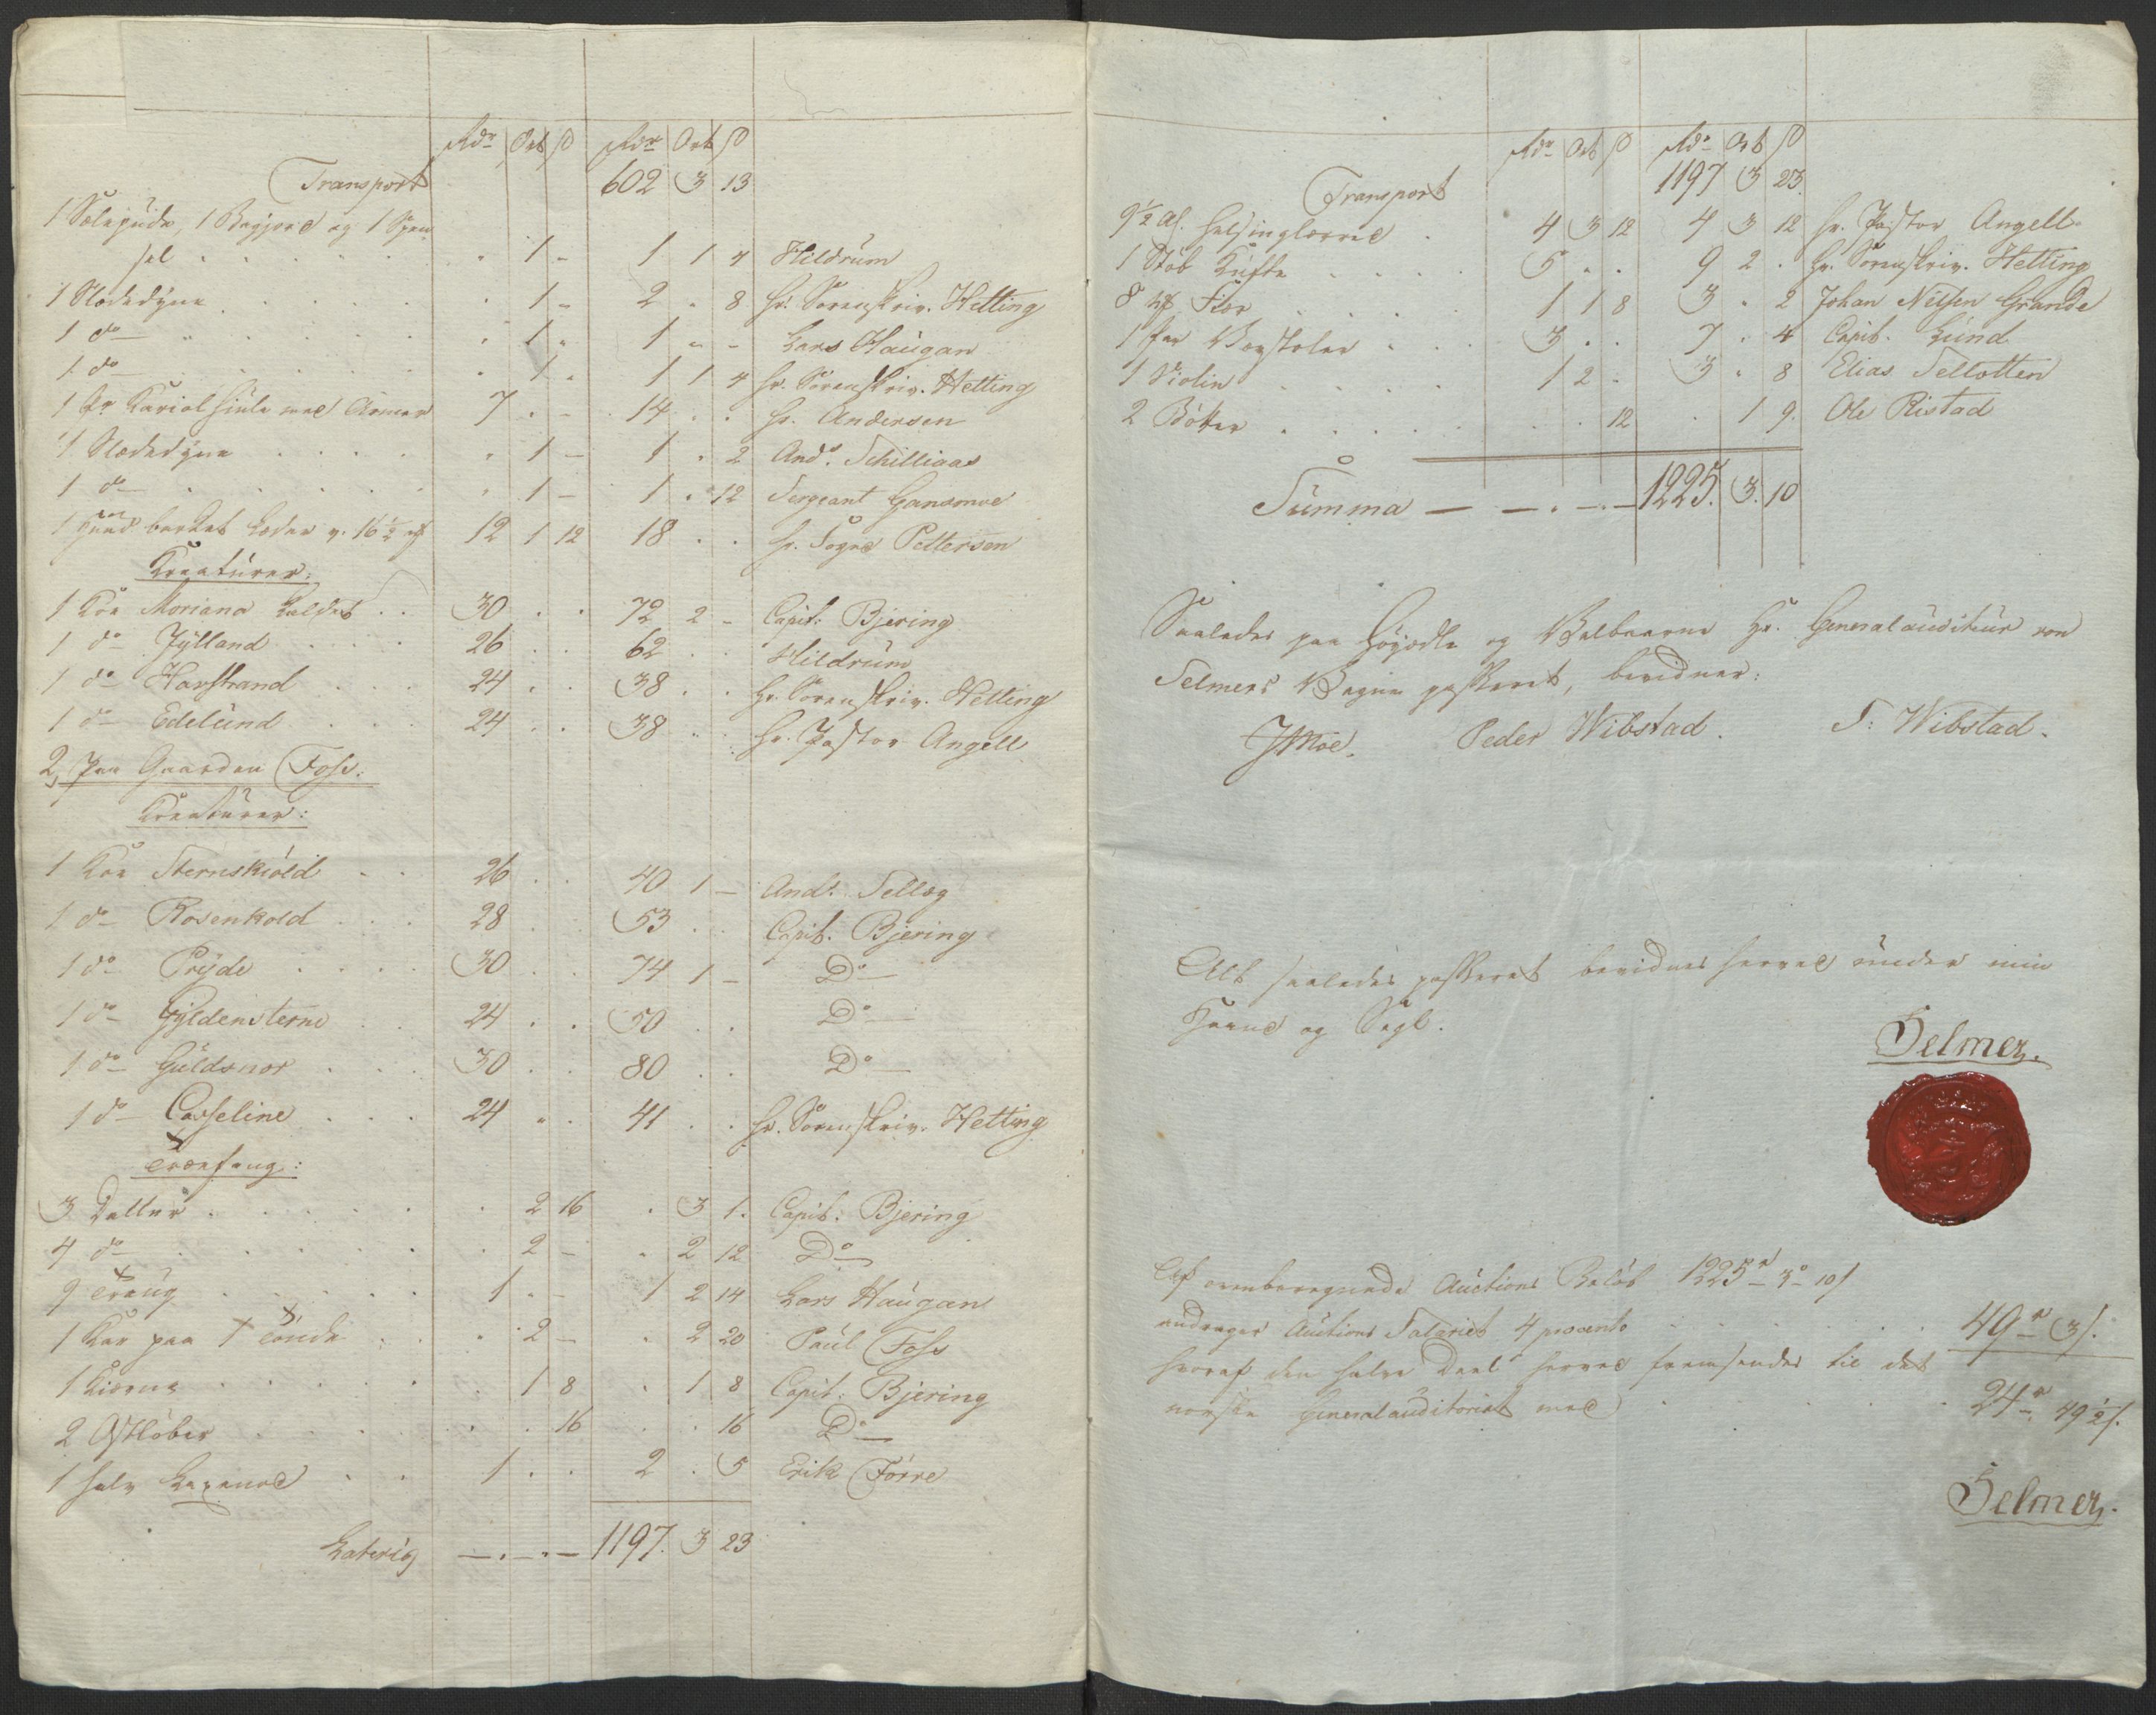 Rdr Ort ß Rdr Ort ß
Transport 602 3 13
1 Sælepude, 1 Bugjord og 1 Spen
sel . . . 1 - 1 1 4 Hildrum
1 Slædedyne . . . 1 - 2 . 8 Hr. Sorenskriv. Hetting
1 do . . . 1 - 1 - - Lars Haugan
1 do . . . 1 - 1 1 4 Hr. Sorenskriv. Hetting
1 pr Kariolhiule med Armer 7 . - 14 . . Hr. Andersen
1 Slædedyne . . . 1 - 1 . 2 Ands. Schilliaas
1 do . . . 1 - 1 . 12 Sergeant Gansmoe
1 barket Læder v. 16 ½ 12 1 12 18 . . Hr. Fogd Pettersen
Kreaturer:
1 Koe Moriana kaldet . . 30 . . 72 2 - Capit: Bjering
1 do Jylland . . . 26 . . 62 . . Hildrum
1 do Havstrand . . . 24 . . 38 . . Hr. Sorenskriv. Hetting
1 do Edelund . . . 24 . . 38 . . Hr. Pastor Angell
2, Paa Gaarden Foss:
Kreaturer:
1 Koe Sternskiold . . 26 . . 40 1 - Ands. Selleg
1 do Rosenkold . . . 28 . . 53 . . Capit. Bjering
1 do Pryde . . . 30 . . 74 1 - Do
1 do Gyldensterne . . 24 . . 50 . . Do
1 do Guldsnor . . . 30 . . 80 . . Do
1 do Casseline . . . 24 . . 41 . . Hr. Sorenskriv. Hetting
Træefang:
3 Daller . . . 2 16 . 3 1. Capit: Bjering
4 do . . . 2 - . 2 12 Do
9 Traug . . . 1 . - 1 2 14 Lars Haugan
1 Kar paa 1 Tønde . . . 2 - . 2 20 Paul Foss
1 Kierne . . . 1 8 . 1 8 Capit: Bjering
2 Ostløber . . . 16 . . 16 Do
1 halv . . 1 . . 2 . 5 Erik Førre
Lateris - . - . - 1197. 3 23
Rdr Ort ß Rdr Ort ß
Transport 1197 3 23.
9½ Al. . 4 3 12 4 3 12 Hr. Pastor Angell
1 Støb Kufte . . . 5 . . 9 2 . Hr. Sorenskriv. Hetting
8 Flor . . . 1 1 8 3 . 2 Johan Nilsen Grande
1 par . . . 3 . . 7 . 4 Capit. Lund
1 Violin . . . 1 2 . 3 . 8 Elias Sellotten
2 Bøtter . . . 12 . 1 9. Ole Ristad
Summa - - . - . - 1225. 3. 10
Saaledes paa Høyædle og Velbaarne Hr. Generalauditeur von
Selmers Vegne passeret, bevidner:
JMoe. Peder Wibstad. S: Wibstad.
Alt saaledes passeret bevidnes herved under min
Haand og Segl.
Selmer.
Af ovenberegnede Auctions Beløb 1225r 3o 10ß
andrager Auctions Salariet 4 procento . . . 49r 3ß.
hvoraf den halve Deel herved fremsendes til det
norske Generalauditoriat med . . . 24r 49½ß.
Selmer.